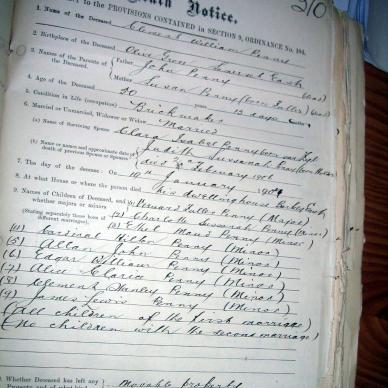 Death Notice.
to the PROVISIONS CONTAINED in SECTION 9, ORDINANCE No. 104.
210
1. Name of the Deceased Clement William Penny
2. Birthplace of the Deceased Olive Grove
3. Names of the Parents of the Deceased { Father John Penny
Mother Susan Penny (born Fuller)
4. Age of the Deceased 50 years 13 days
5. Condition in Life (occupation) Brickmaker
6. Married or Unmarried, Widower or Widow Married
(a) Name of Surviving Spouse Clara Isabel Penny born
(b) Name or names and approximate date of death of previous Spouse or Spouses Judith Susannah Penny
died February 1901
7. The day of the decease: On 19th January 1904
8. At what House or where the person died his dwellinghouse
9. Names of Children of Deceased, and whether majors or minors
(Stating separately those born of different marriages).
(1) Fuller Penny (Major)
(2) Charlotte Susannah Penny
(3) Ethel Maud Penny (Minor)
(4) Penny (Minor)
(5) Allan John Penny (Minor)
(6) Edgar William Penny (Minor)
(7) Alice Clarice Penny (Minor)
(8) Clement Stanley Penny (Minor)
(9) James Lewis Penny (Minor)
(All children of the first marriage)
(No children with the second marriage)
Whether Deceased has left any
Property, and of what kind movable property